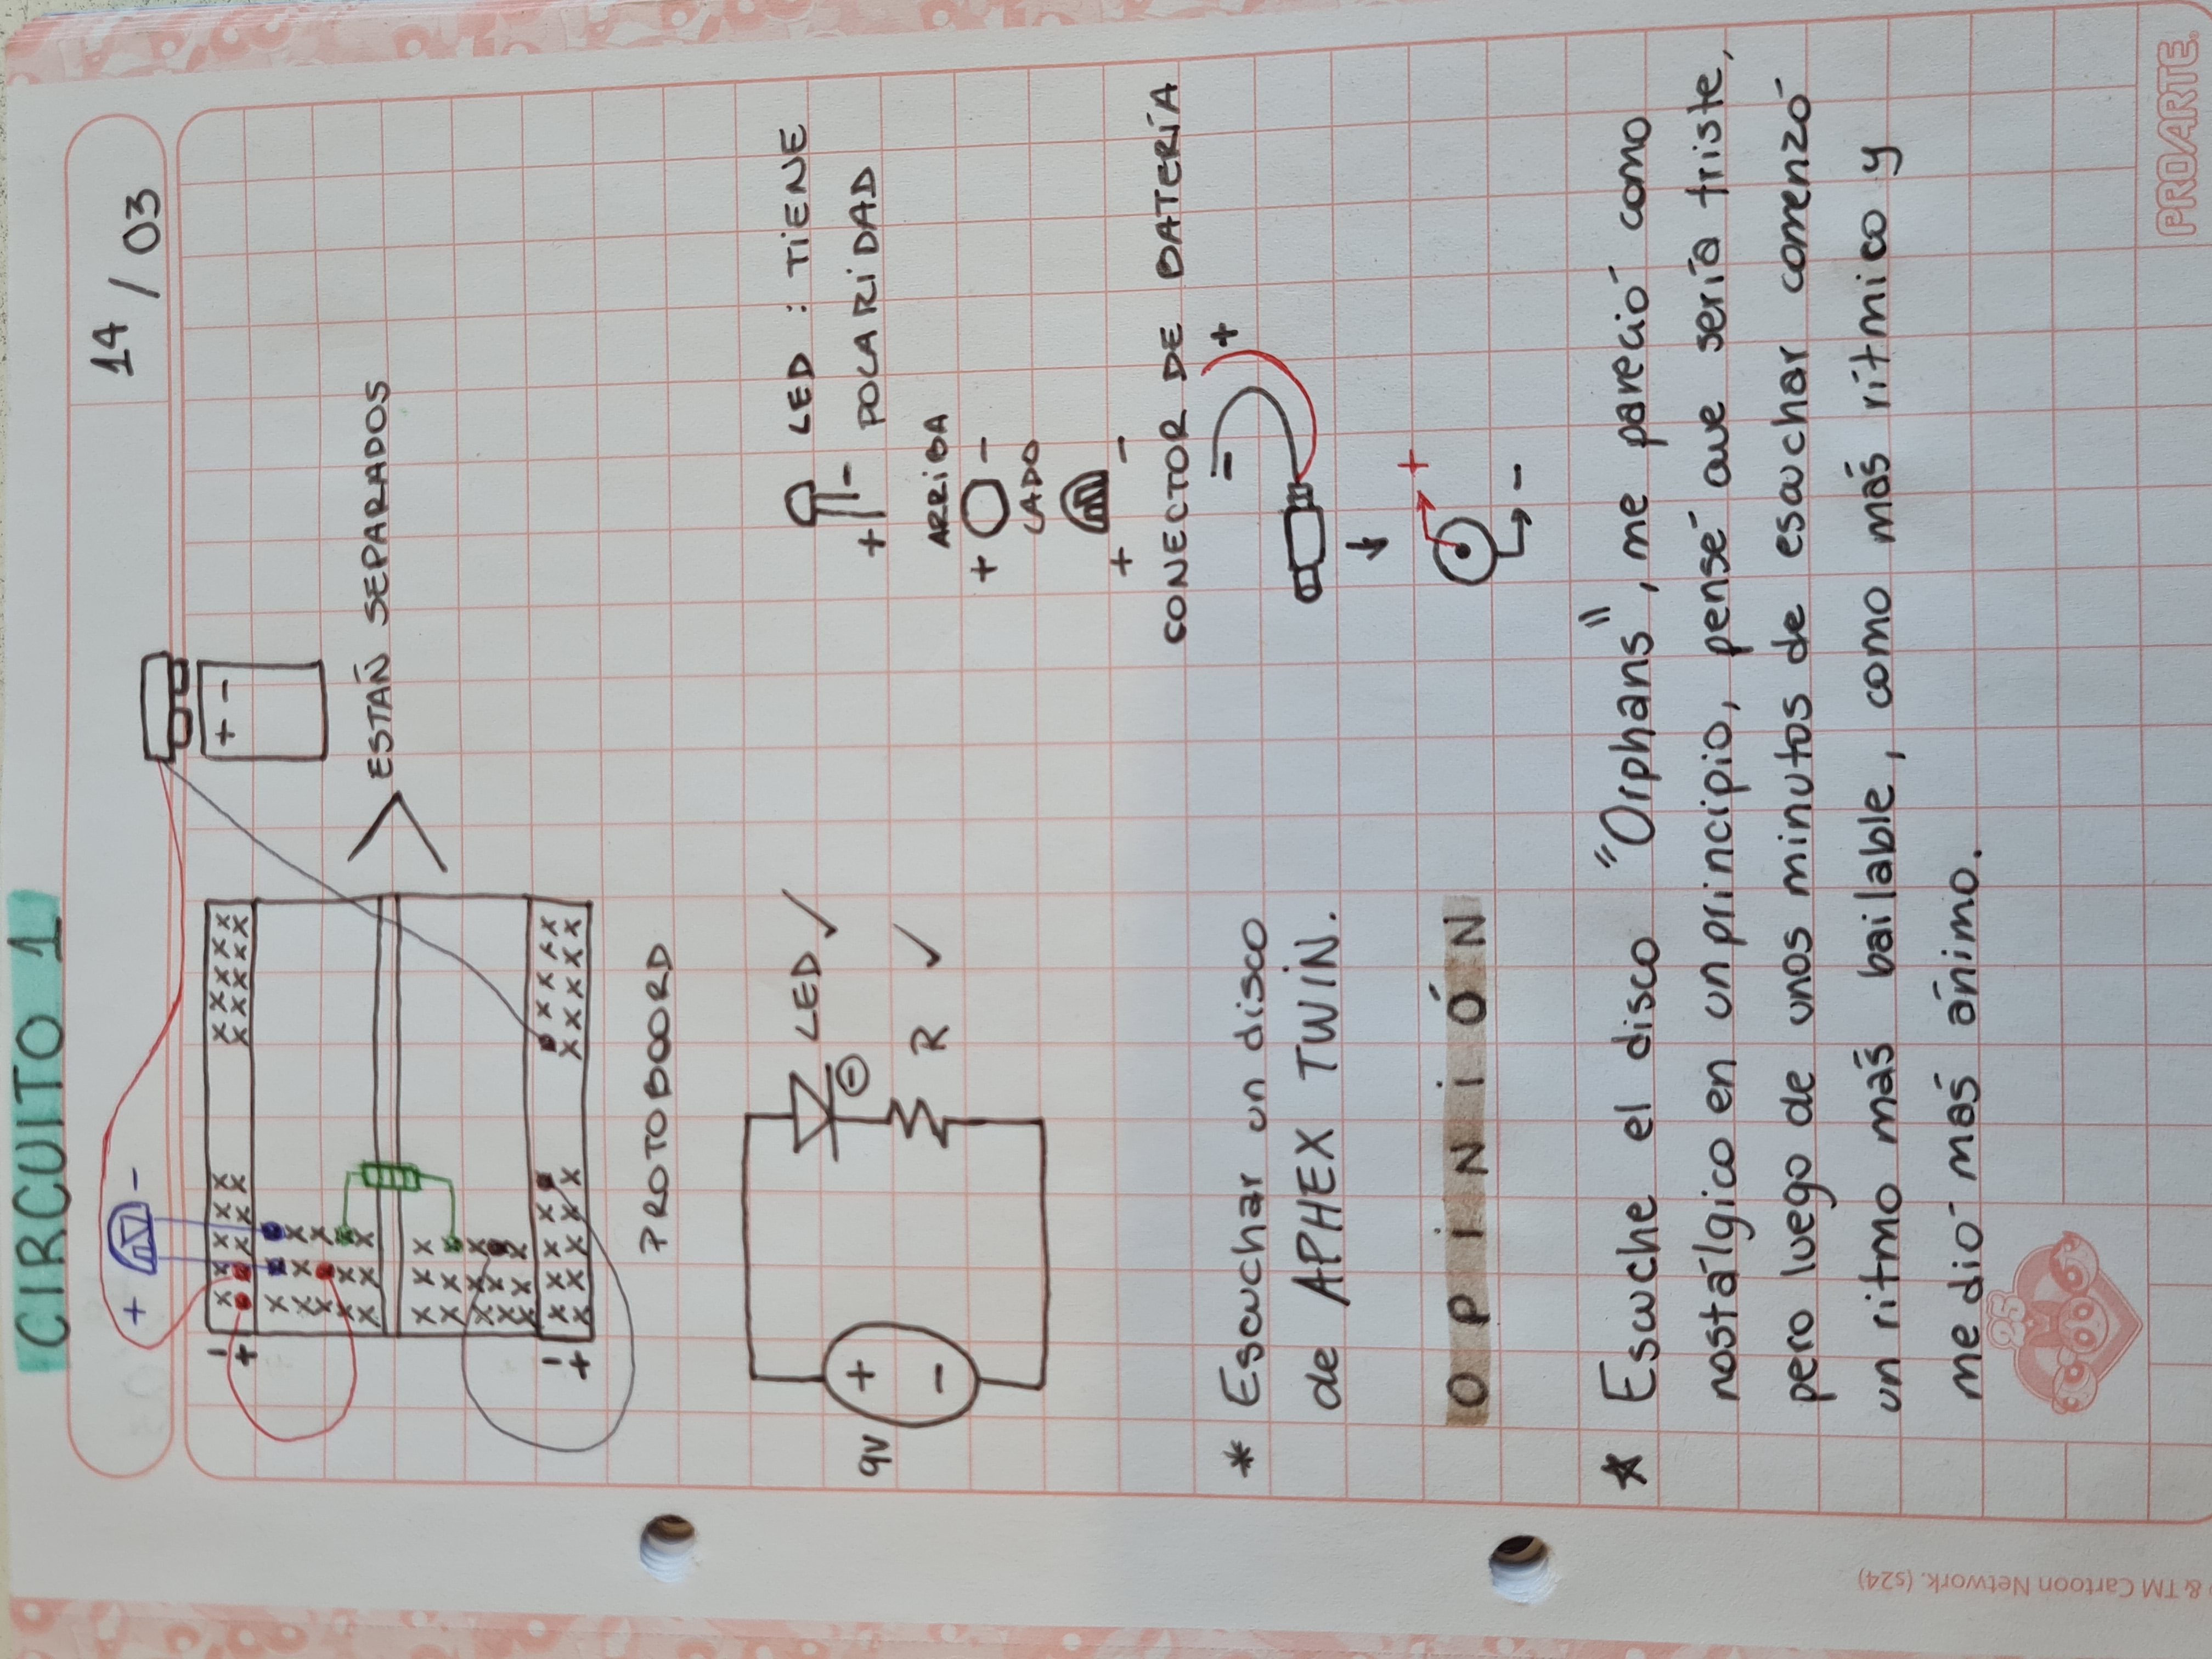 CIRCUITO 1
14 / 03
+ -
-
+
+ -
ESTAÑ SEPARADOS
-
+
PROTOBOORD
LED ✓
9V
+
-
R ✓
LED : TIENE
POLARIDAD
+ -
ARRIBA
+ -
LADO
+ -
CONECTOR DE BATERÍA
- +
* Escuchar un disco
de APHEX TWIN.
+
-
OPINIÓN
* Escuche el disco "Orphans", me pareció como
nostálgico en un principio, pensé que sería triste,
pero luego de unos minutos de escuchar comenzó
un ritmo más bailable, como más rítmico y
me dió más ánimo.
25
& TM Cartoon Network. (s24)
PROARTE.